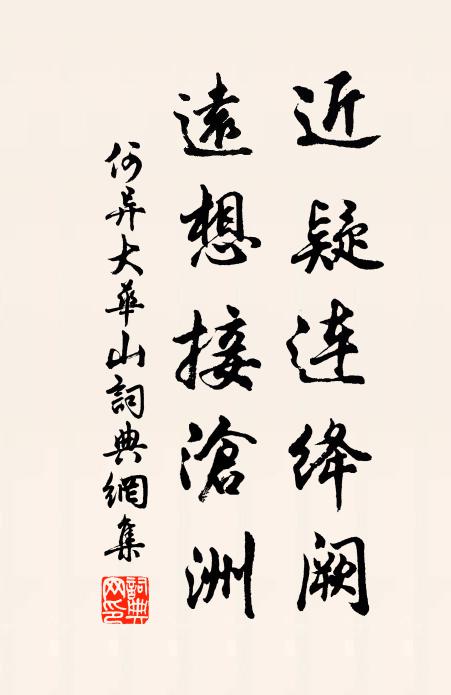 近疑连绛阙
遠想接滄洲
何异大華山詞典網集
詞典网印